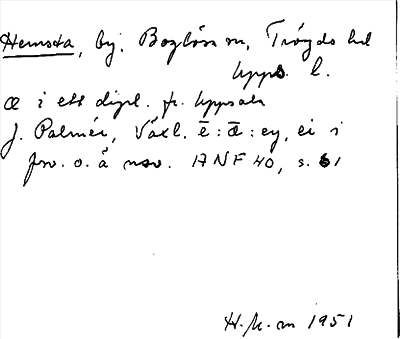 Hemsta, by, Boglösa sn, Trögds hd
Upps. l.
æ i ett dipl. fr. Uppsala
J. Palmér, Växl. ē : ǣ : ey, ei i
fsv. o. ä nsv. ANF 40, s. 61
1951